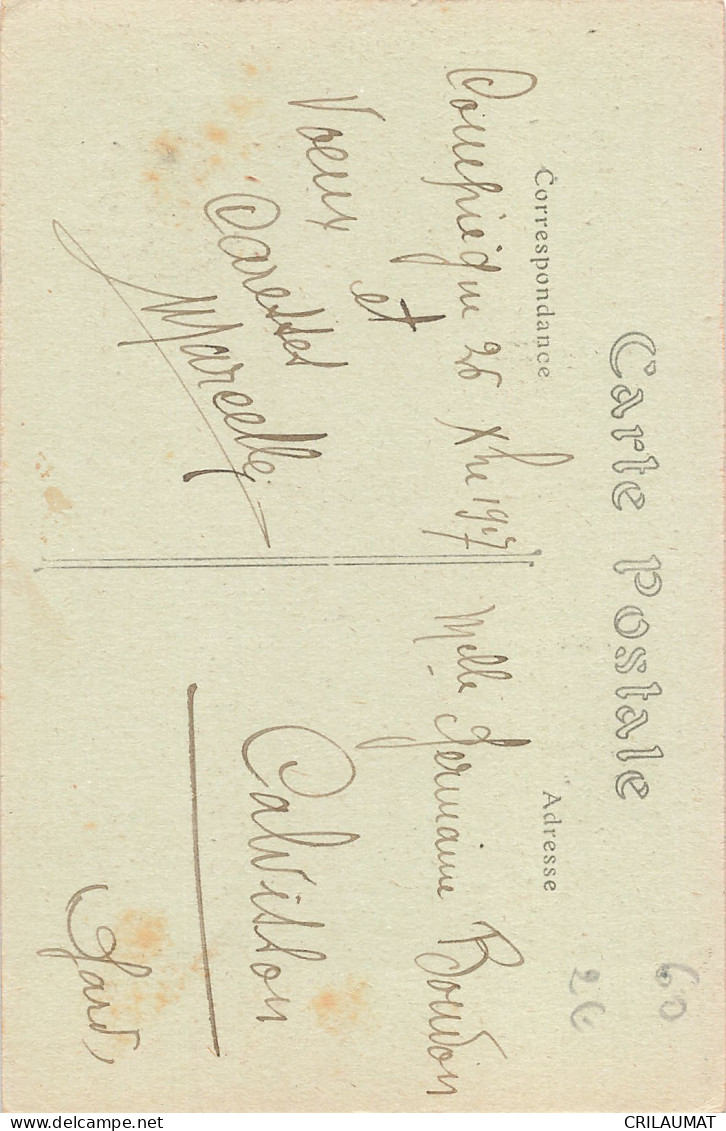 Carte Postale
Correspondance
Adresse
Compiègne 26 Xbre 1917
Voeux
et
Caresses
Marcelle
Melle Germaine Boudon
Calvisson
Gard
60
26
www.delcampe.net
CRILAUMAT